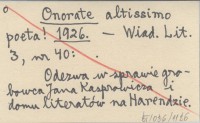 o Onorate altissimo
poeta! 1926. – Wiad. Lit.
3, nr 40: .
Odezwa w sprawie gro-
bowca Jana Kasprowicza i
domu literatów na Harendzie.